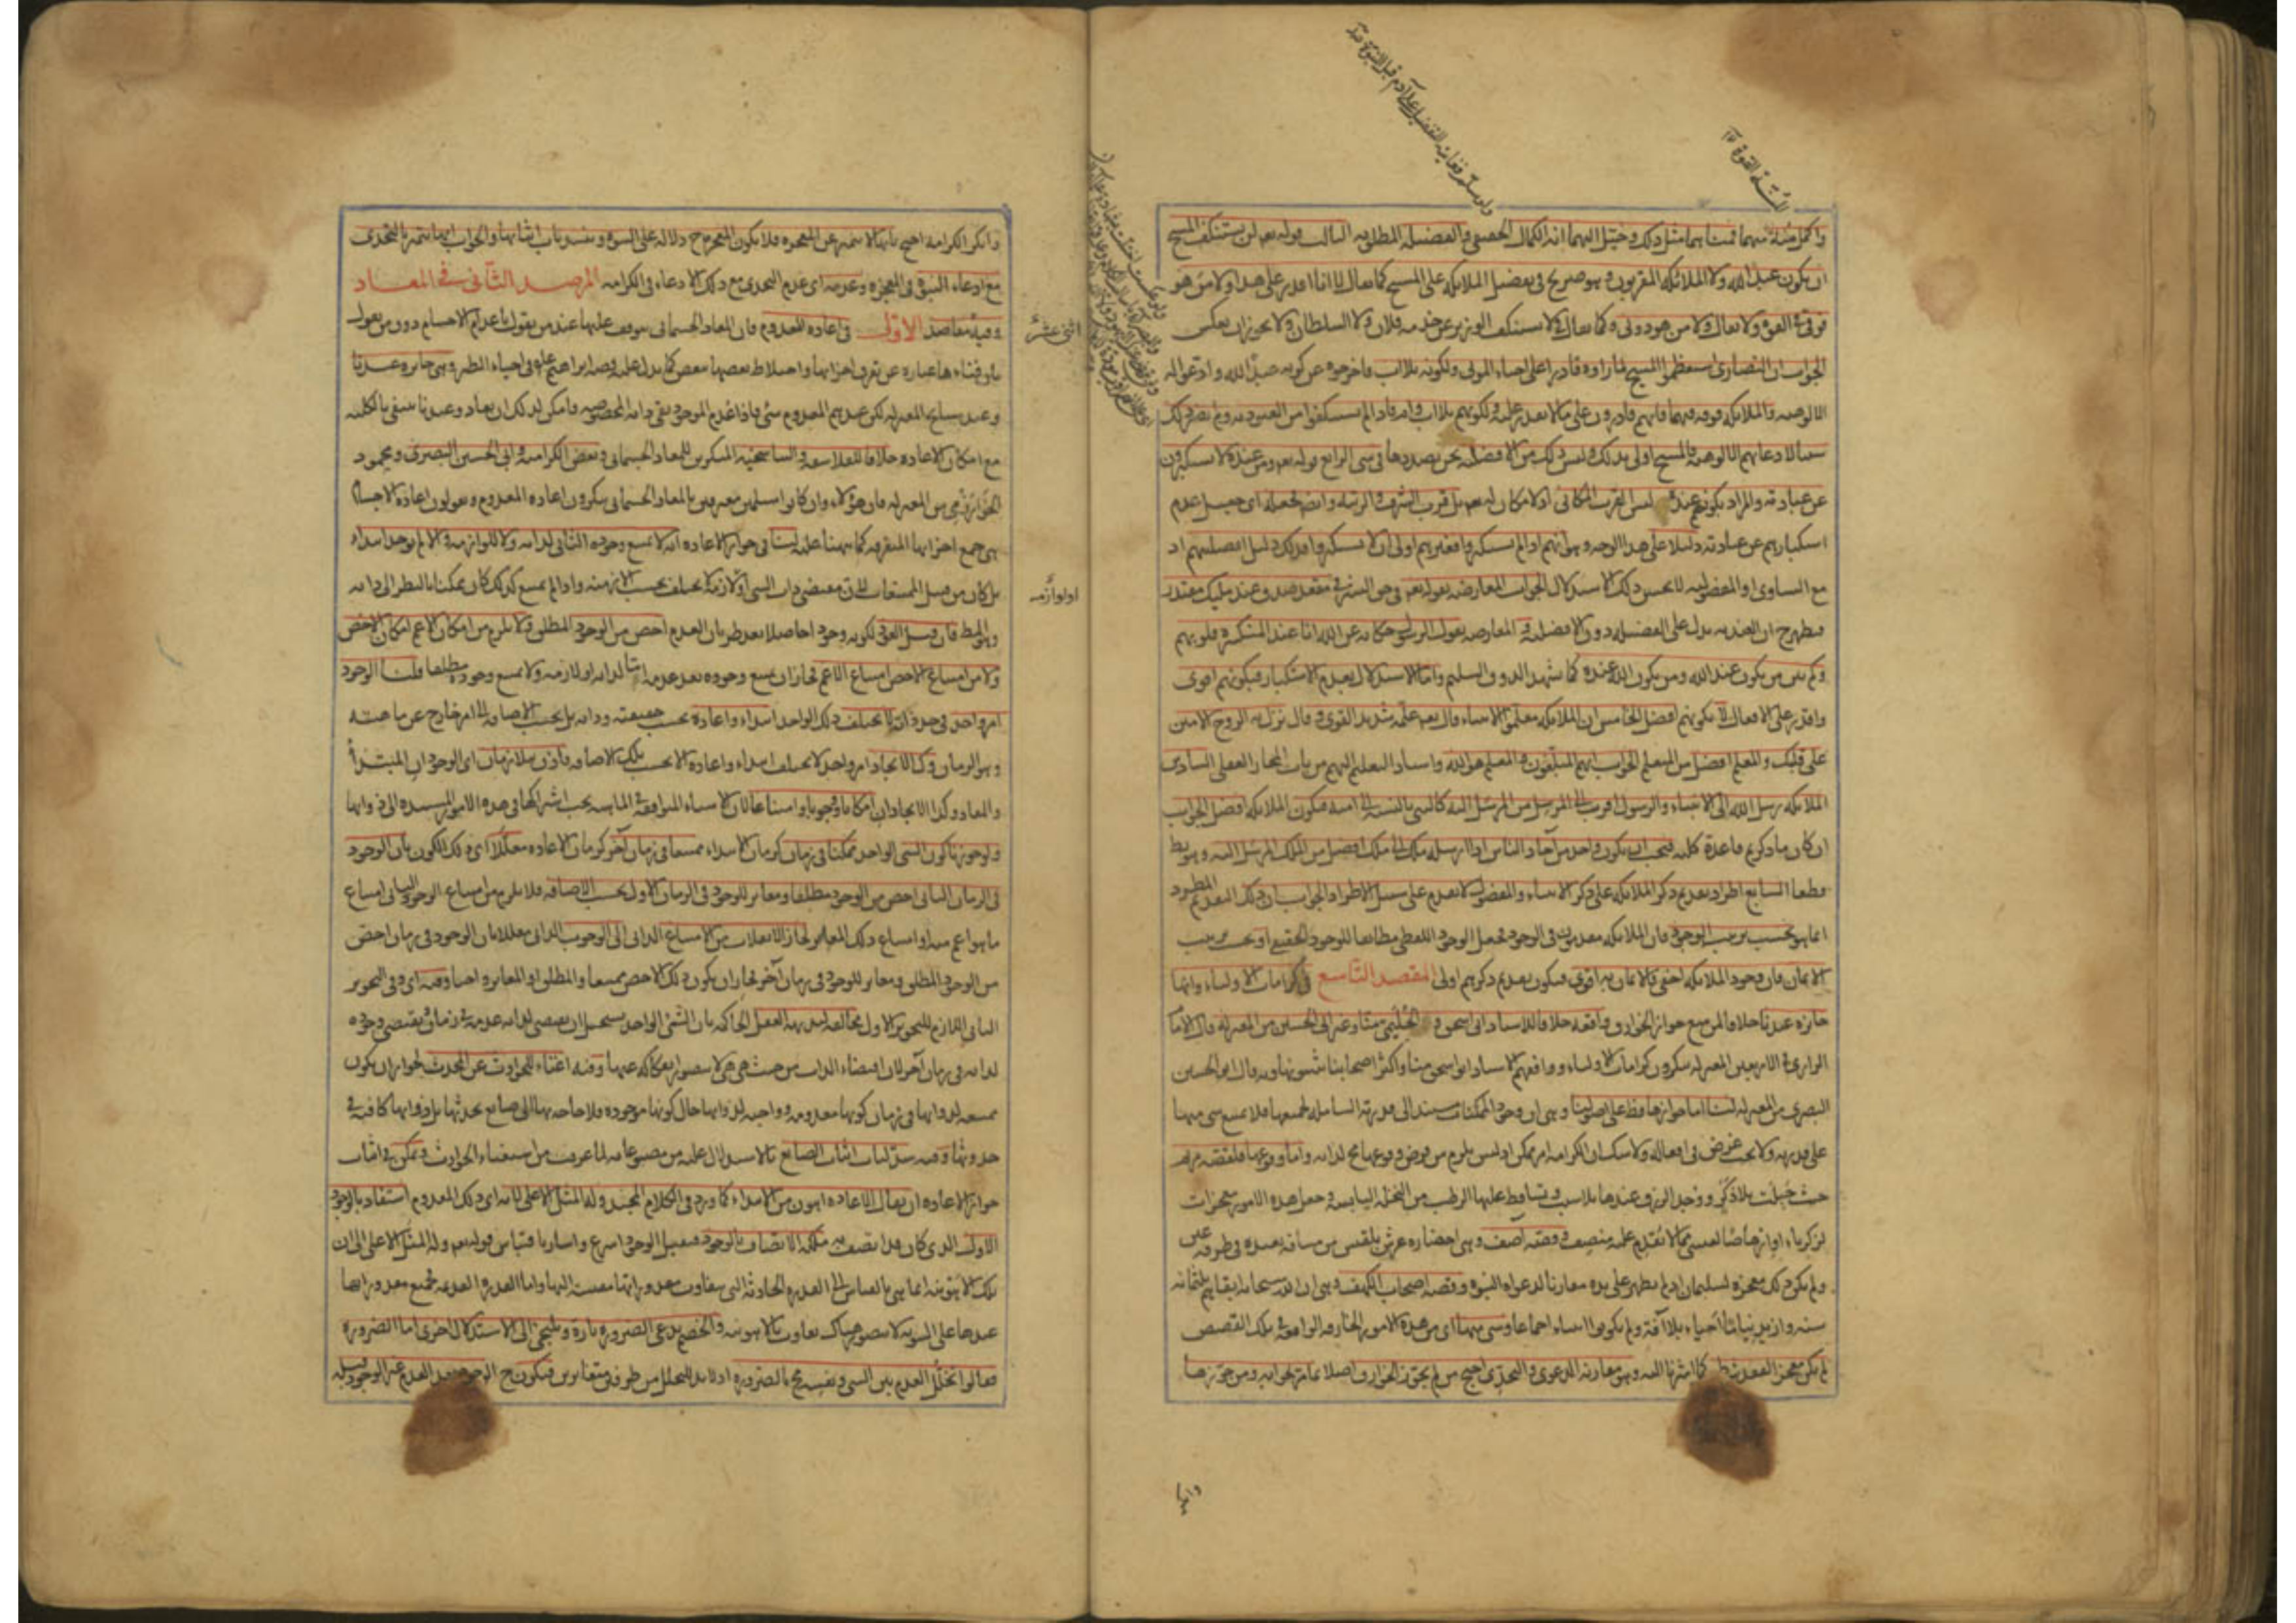 واكمل منه فيهما قمنا بهما مثل ذلك وخيل اليهما انه الكمال الحقيقي والفضيلة المطلوبة الثالث قوله تعالى لن يستنكف المسيح
ان يكون عبدا لله ولا الملائكة المقربون وهو صريح في تفضيل الملائكة على المسيح كما يقال انا لا اقدر على هذا ولا من هو
فوقي في القوة ولا يقال ولا من هو دوني وكما يقال لا يستنكف الوزير عن خدمة فلان ولا السلطان ولا يجوز ان يعكس
الجواب ان النصارى استعظموا المسيح لما راوه قادرا على احياء الموتى ولكونه بلا اب فاخرجوه عن كونه عبدا لله وادعوا له
الالوهية والملائكة فوقه فيهما فانهم قادرون على ما لا يقدر عليه ولكونهم بلا اب وام فاذا لم يستنكفوا من العبودية ولم يصر ذلك
سببا لادعائهم الالوهية فالمسيح اولى بذلك وليس ذلك من الافضلية التي نحن بصددها في شيء الرابع قوله تعالى ومن عنده لا يستكبرون
عن عبادته والمراد بكونهم عنده ليس القرب المكاني اذ لا مكان له تعالى بل قرب الشرف والرتبة وايضا فجعله اي جعل عدم
استكبارهم عن عبادته دليلا على هذا الوجه وهو انهم اذا لم يستكبروا فغيرهم اولى ان لا يستكبروا فذلك دليل افضليتهم اذ
مع التساوي او المفضولية لا يحسن ذلك الاستدلال الجواب المعارضة بقوله تعالى في حق البشر في مقعد صدق عند مليك مقتدر
فظهر ح ان العندية تدل على الفضيلة دون الافضلية والمعارضة بقول الرسول حكاية عن الله انا عند المنكسرة قلوبهم
وكم بين من يكون عند الله ومن يكون الله عنده كما يشهد الذوق السليم واما الاستدلال بعدم الاستكبار فبكونهم اقوى
واقدر على الافعال لا بكونهم افضل الخامس ان الملائكة معلموا الانبياء قال تعالى علمه شديد القوى وقال نزل به الروح الامين
على قلبك والمعلم افضل من المتعلم الجواب انهم المبلغون والمعلم هو الله واسناد التعليم اليهم من باب المجاز العقلي السادس
الملائكة رسل الله الى الانبياء والرسول اقرب الى المرسل من المرسل اليه كالنبي بالنسبة الى امته فيكون الملائكة افضل الجواب
ان كان ما ذكرتم قاعدة كلية فيجب ان يكون واحد من آحاد الناس اذا ارسله ملك الى ملك افضل من الملك المرسل اليه وهو بط
قطعا السابع اطراد تقديم ذكر الملائكة على ذكر الانبياء والمفضول لا يقدم على سبيل الاطراد الجواب ان ذلك التقديم المطرد
انما هو بحسب ترتيب الوجود فان الملائكة مقدمون في الوجود فجعل الوجود اللفظي مطابقا للوجود الحقيقي او بحسب ترتيب
الايمان فان وجود الملائكة اخفى فالايمان به اقوى فيكون تقديم ذكرهم اولى المقصد التاسع في كرامات الاولياء وانها
جائزة عندنا خلافا لمن منع جواز الخوارق واقعة خلافا للاستاذ ابي اسحق والحليمي منا وغير ابي الحسين من المعتزلة قال الامام
الرازي في الاربعين المعتزلة ينكرون كرامات الاولياء ووافقهم الاستاذ ابو اسحق منا واكثر اصحابنا يثبتونها وبه قال ابو الحسين
البصري من المعتزلة لنا اما جوازها فظ على اصولنا وهي ان وجود الممكنات مستند الى قدرته الشاملة لجميعها فلا يمتنع شيء منها
على قدرته ولا يجب غرض في افعاله ولا شك ان الكرامة امر ممكن اذ ليس يلزم من فرض وقوعها مح لذاته واما وقوعها فلقصة مريم
حيث حبلت بلا ذكر ووجد الرزق عندها بلا سبب وتساقط عليها الرطب من النخلة اليابسة وجعل هذه الامور معجزات
لزكرياء او ارهاصا لعيسى مما لا يقدم عليه منصف وقصة آصف وهي احضاره عرش بلقيس من مسافة بعيدة في طرفة عين
ولم يكن ذلك معجزة لسليمان اذ لم يظهر على يده مقارنا لدعواه النبوة وقصة اصحاب الكهف وهي ان الله سبحانه ابقاهم ثلثمائة
سنة وازيد نياما احياء بلا آفة ولم يكونوا انبياء اجماعا وشيء منها اي من هذه الامور الخارقة الواقعة في تلك القصص
لم يكن معجزا لفقد شرطه كما اشرنا اليه وهو مقارنة الدعوى والتحدي احتج من لم يجوز الخوارق اصلا بما مر بجوابه ومن جوزها
وانكر
المنة القوة ١٢
ولو سلم فغايته التفضيل على آدم قبل النبوة
وانكر الكرامة احتج بانها لا تتميز عن المعجزة فلا يكون المعجزة ح دلالة على النبوة وينسد باب اثباتها والجواب انها تتميز بالتحدي
مع ادعاء النبوة في المعجزة وعدمه اي عدم التحدي مع ذلك الادعاء في الكرامة المرصد الثاني في المعاد
وفيه مقاصد الاول في اعادة المعدوم فان المعاد الجسماني يتوقف عليها عند من يقول باعدام الاجسام دون من يقول
اثنى عشر
بان فناءها عبارة عن تفرق اجزائها واختلاط بعضها ببعض كما يدل عليه قصة ابراهيم عليه في احياء الطير وهي جائزة عندنا
وعند مشايخ المعتزلة لكن عندهم المعدوم شيء فاذا عدم الموجود بقي ذاته المخصوصة فامكن لذلك ان يعاد وعندنا ينتفي بالكلية
مع امكان الاعادة خلافا للفلاسفة والتناسخية المنكرين للمعاد الجسماني وبعض الكرامية وابي الحسين البصري ومحمود
الخوارزمي من المعتزلة فان هؤلاء وان كانوا مسلمين معترفين بالمعاد الجسماني ينكرون اعادة المعدوم ويقولون اعادة الاجسام
هي جمع اجزائها المتفرقة كما نبهنا عليه لنا في جواز الاعادة انه لا يمتنع وجوده الثاني لذاته ولا للوازمه والا لم يوجد ابتداء
بل كان من قبيل الممتنعات لان مقتضى ذات الشيء او لازمه لا يختلف بحسب الازمنة واذا لم يمتنع كذلك كان ممكنا بالنظر الى ذاته
او لوازمه
وهو المط فان قيل العود لكونه وجودا حاصلا بعد طريان العدم اخص من الوجود المطلق ولا يلزم من امكان الاعم امكان الاخص
ولا من امتناع الاخص امتناع الاعم فجاز ان يمتنع وجوده بعد عدمه اما لذاته او لازمه ولا يمتنع وجوده مطلقا قلنا الوجود
امر واحد في حد ذاته لا يختلف ذلك الواحد ابتداء واعادة بحسب حقيقته وذاته بل بحسب الاضافة الى امر خارج عن ماهيته
وهو الزمان وكذا الايجاد امر واحد لا يختلف ابتداء واعادة الا بحسب تلك الاضافة فاذن يتلازمان اي الوجودان المبتدأ
والمعاد وكذا الايجادان امكانا ووجوبا وامتناعا لان الاشياء المتوافقة في الماهية يجب اشتراكها في هذه الامور المستندة الى ذواتها
ولو جوزنا كون الشيء الواحد ممكنا في زمان كزمان الابتداء ممتنعا في زمان آخر كزمان الاعادة معللا اي ذلك الكون بان الوجود
في الزمان الثاني اخص من الوجود مطلقا ومغاير للوجود في الزمان الاول بحسب الاضافة فلا يلزم من امتناع الوجود الثاني امتناع
ما هو اعم منه او امتناع ذلك المغاير لجاز الانقلاب من الامتناع الذاتي الى الوجوب الذاتي معللا بان الوجود في زمان اخص
من الوجود المطلق ومغاير للوجود في زمان آخر فجاز ان يكون ذلك الاخص ممتنعا والمطلق او المغاير واجبا وفيه اي وفي التجويز
الثاني اللازم للتجويز الاول مخالفة لبديهة العقل الحاكمة بان الشيء الواحد يستحيل ان يقتضي لذاته عدمه في زمان ويقتضي وجوده
لذاته في زمان آخر لان اقتضاء الذات من حيث هي هي لا يتصور انفكاكه عنها وفيه اغناء للحوادث عن المحدث لجواز ان يكون
ممتنعة لذواتها في زمان كونها معدومة وواجبة لذواتها حال كونها موجودة فلا حاجة بها الى صانع يحدثها بل ذواتها كافية في
حدوثها وفيه سد لباب اثبات الصانع بالاستدلال عليه من مصنوعاته لما عرفت من استغناء الحوادث ويمكن في اثبات
جواز الاعادة ان يقال الاعادة اهون من الابتداء كما ورد في الكلام المجيد وله المثل الاعلى لانه اي ذلك المعدوم استفاد بالوجود
الاول الذي كان قد اتصف به ملكة الاتصاف بالوجود فيقبل الوجود اسرع واشار باقتباس قوله تعالى وله المثل الاعلى الى ان
تلك الاهونية انما هي بالقياس الى القدرة الحادثة التي يتفاوت مقدوراتها مقيسة اليها واما القدرة القديمة فجميع مقدوراتها
عندها على السوية لا يتصور هناك تفاوت بالاهونية والخصم يدعي الضرورة تارة ويلتجئ الى الاستدلال اخرى اما الضرورة
فقالوا تخلل العدم بين الشيء ونفسه مح بالضرورة اذ لا بد للتخلل من طرفين متغايرين فيكون ح الوجود بعد العدم غير الوجود قبله